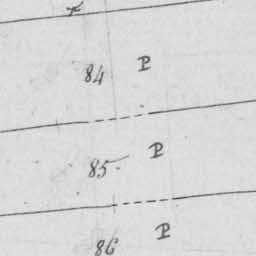 84 P
85 P
86 P